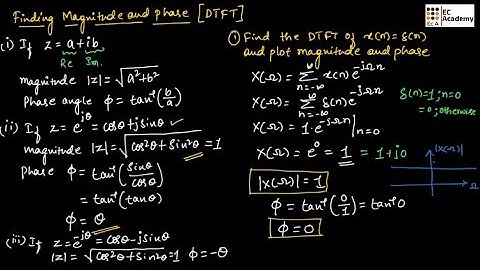 Finding Magnitude and phase [DTFT]
EC Academy
EC A
(i) If z = a+ib
Re Im.
magnitude |z| = √a²+b²
Phase angle φ = tan⁻¹(b/a)
(ii) If z = e^jθ = cosθ+jsinθ ✓
magnitude |z| = √cos²θ+sin²θ = 1
Phase φ = tan⁻¹(sinθ/cosθ)
= tan⁻¹(tanθ)
φ = θ
(iii) If z = e^-jθ = cosθ-jsinθ
|z| = √cos²θ+sin²θ = 1 φ = -θ
① Find the DTFT of x(n) = δ(n)
and plot magnitude and phase
X(Ω) = ∞ Σ n=-∞ x(n) e^-jΩn
X(Ω) = ∞ Σ n=-∞ δ(n) e^-jΩn
δ(n)=1 ; n=0
=0 ; otherwise
X(Ω) = 1·e^-jΩn |n=0
X(Ω) = e⁰ = 1 = 1+j0
|X(Ω)| = 1
φ = tan⁻¹(0/1) = tan⁻¹0
φ = 0
|X(Ω)|
Ω